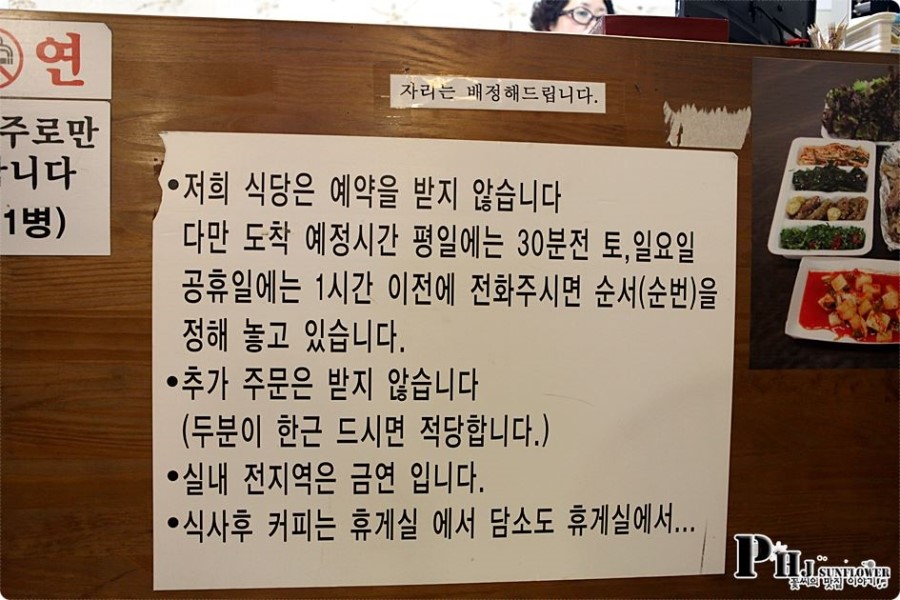 연
주로만
니다
1병)
자리는 배정해드립니다.
•저희 식당은 예약을 받지 않습니다
다만 도착 예정시간 평일에는 30분전 토,일요일
공휴일에는 1시간 이전에 전화주시면 순서(순번)을
정해 놓고 있습니다.
•추가 주문은 받지 않습니다
(두분이 한근 드시면 적당합니다.)
•실내 전지역은 금연 입니다.
•식사후 커피는 휴게실 에서 담소도 휴게실에서...
PHJ SUNFLOWER
꽃씨의 맛진 이야기